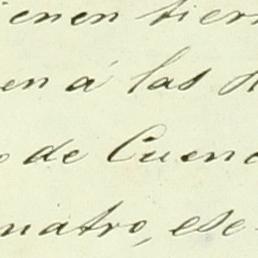 ienen tier
en á las d
o de Cuenc
uatro, ese